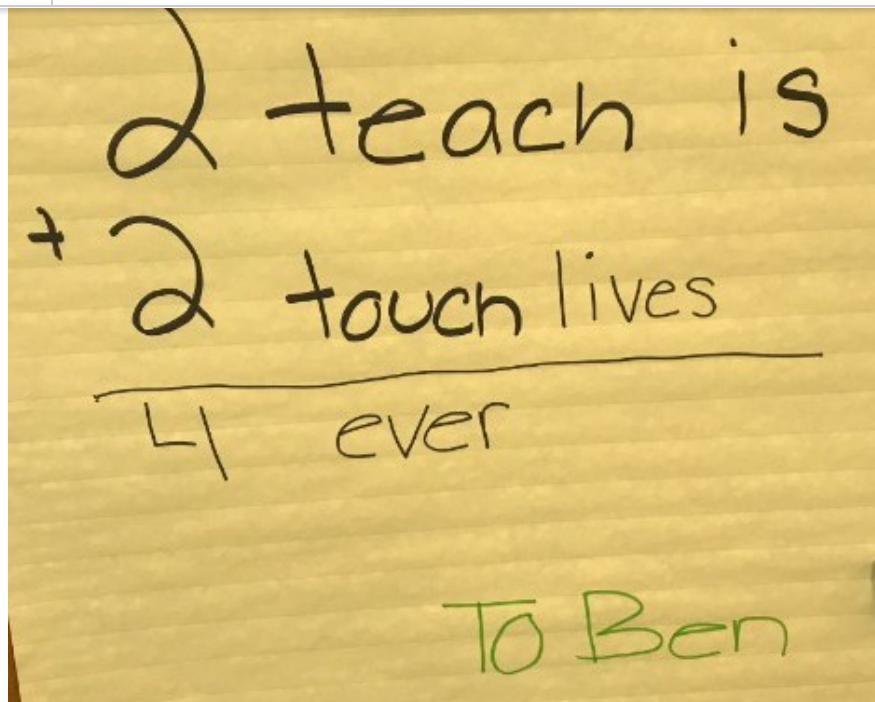 2 teach is
+ 2 touch lives
4 ever
To Ben